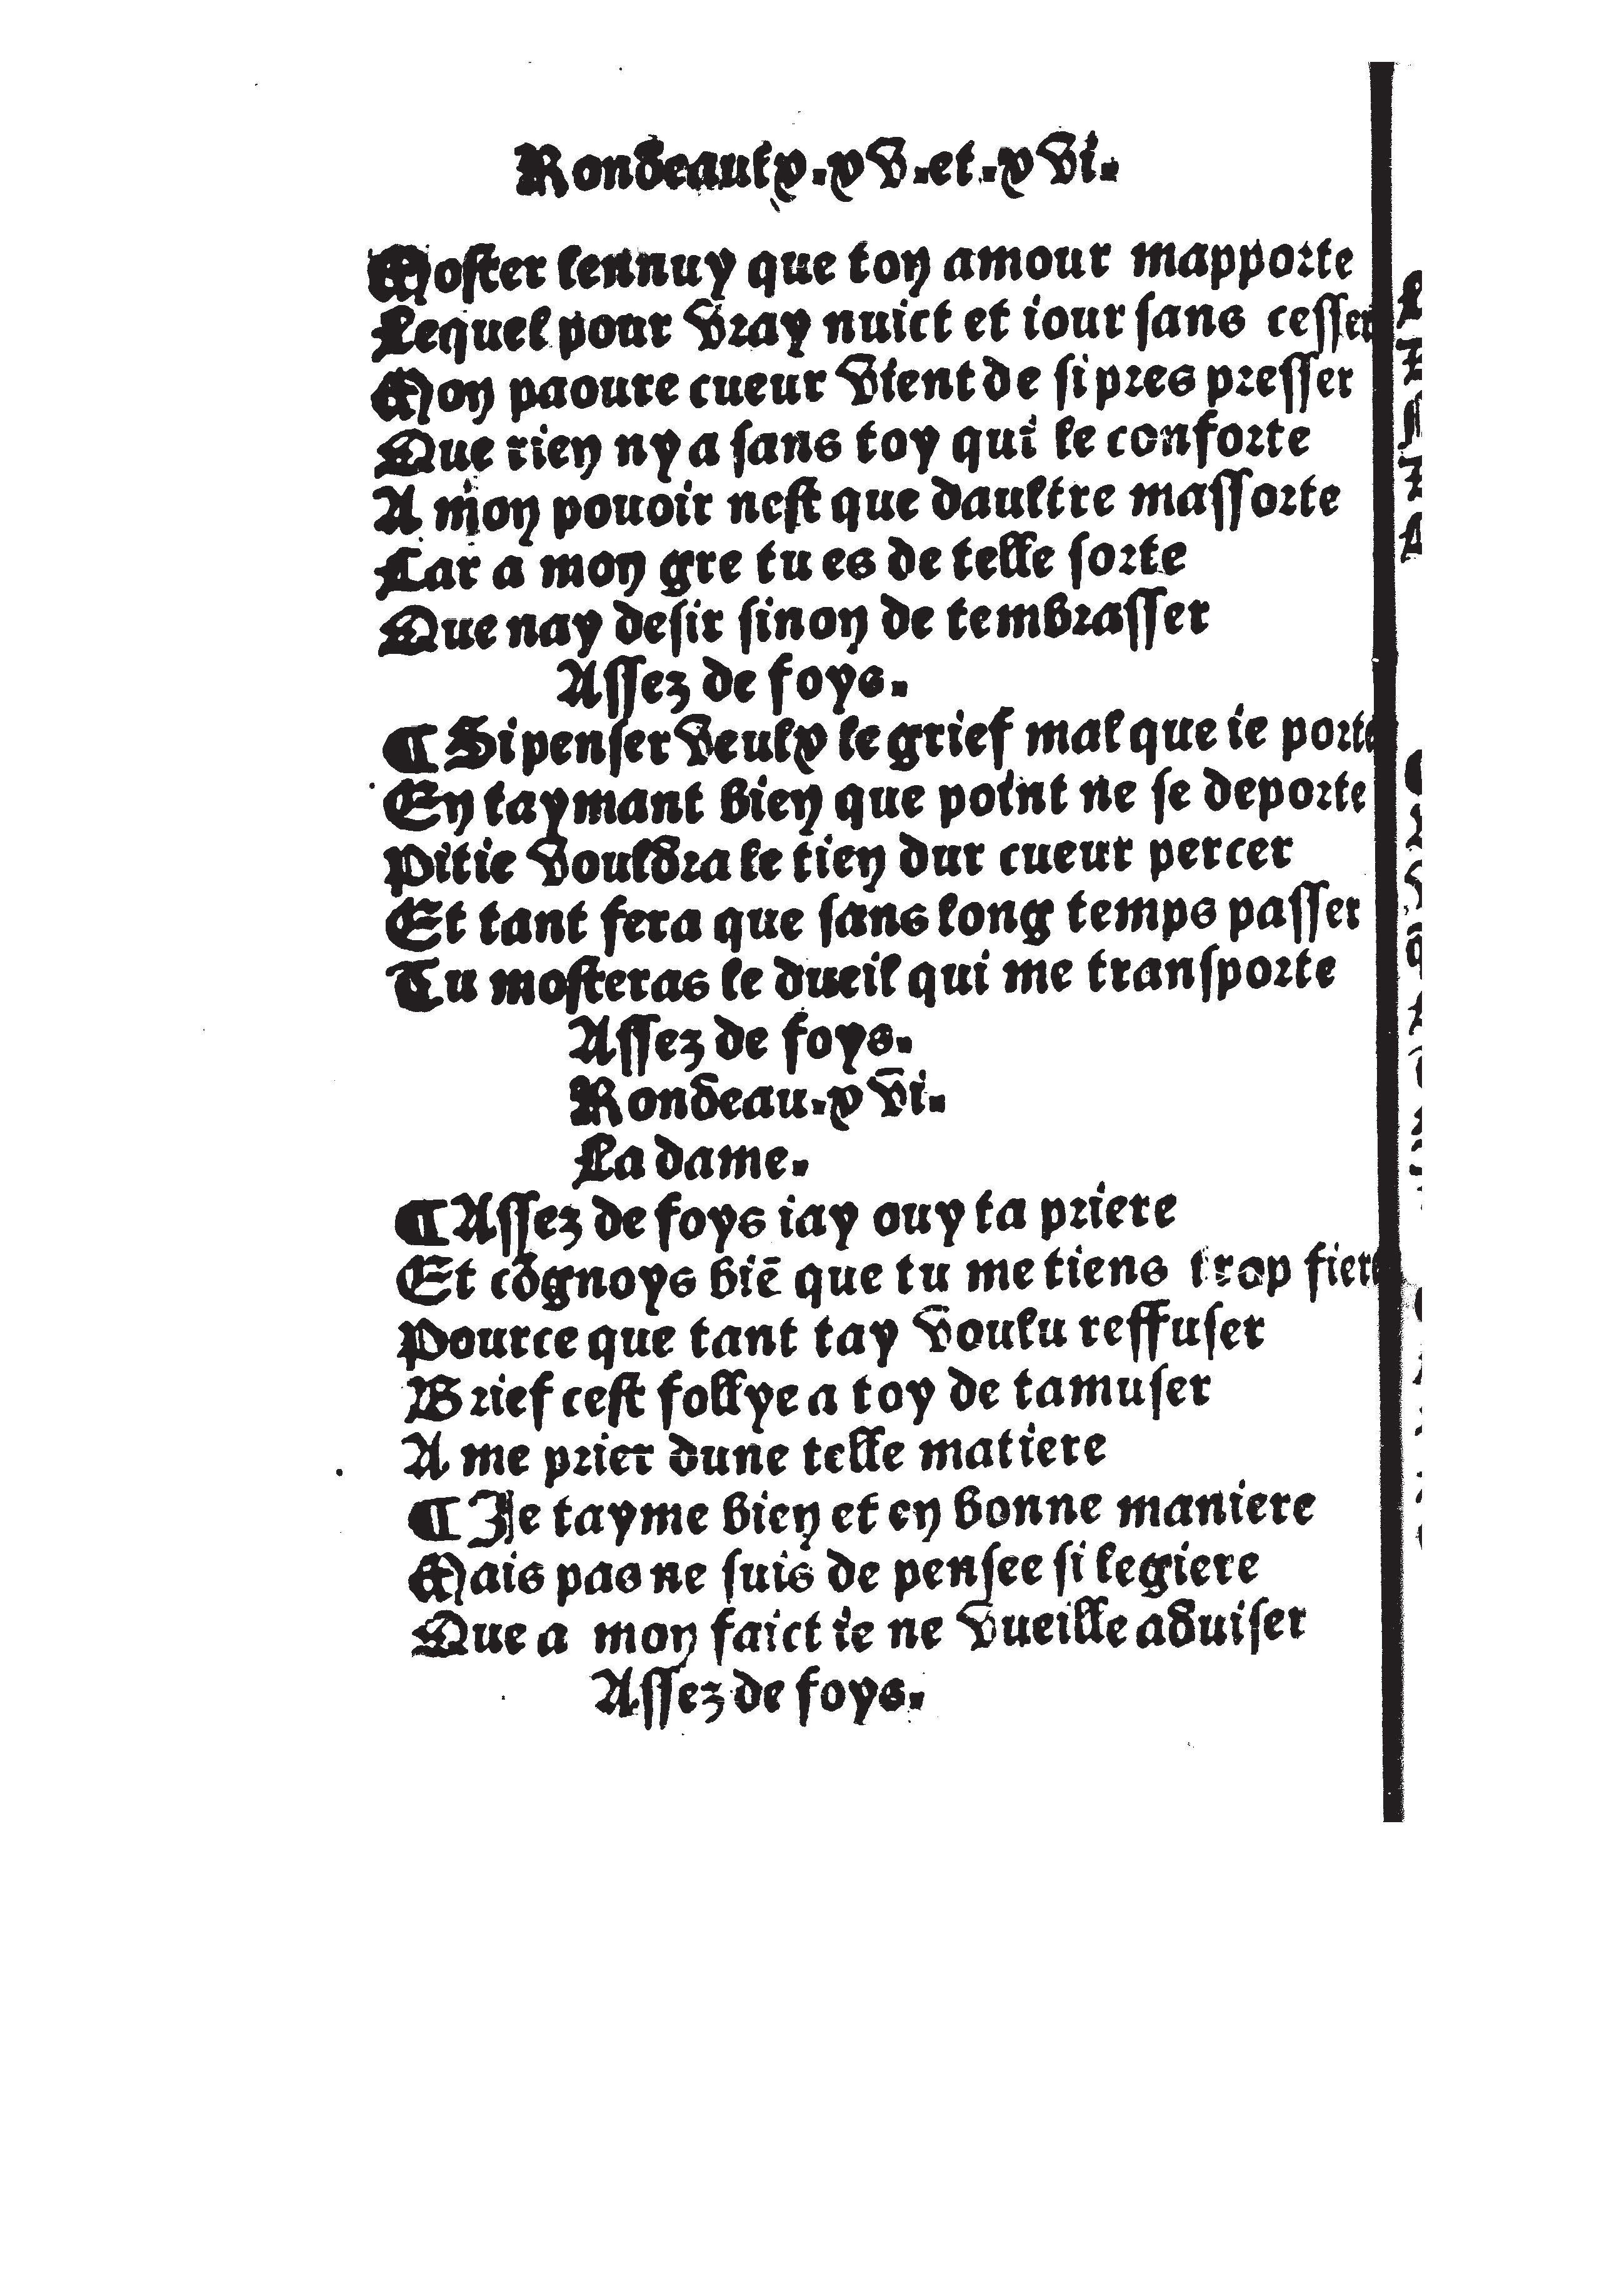 Rondeaulx.xv.et.xvi.
Moster lennuy que ton amour mapporte
Lequel pour vray nuict et iour sans cesser
Mon paoure cueur vient de si pres presser
Que rien ny a sans toy qui le conforte
A mon pouoir nest que daultre massorte
Car a mon gre tu es de telle sorte
Que nay desir sinon de tembrasser
Assez de foys.
¶ Si penser veulx le grief mal que ie porte
En taymant bien que point ne se deporte
Pitie vouldra le tien dur cueur percer
Et tant fera que sans long temps passer
Tu mosteras le dueil qui me transporte
Assez de foys.
Rondeau.xvi.
La dame.
¶ Assez de foys iay ouy ta priere
Et cõgnoys biē que tu me tiens trop fiere
Pource que tant tay voulu reffuser
Brief cest follye a toy de tamuser
A me prier dune telle matiere
¶ Je tayme bien et en bonne maniere
Mais pas ne suis de pensee si legiere
Que a mon faict ie ne vueille aduiser
Assez de foys.